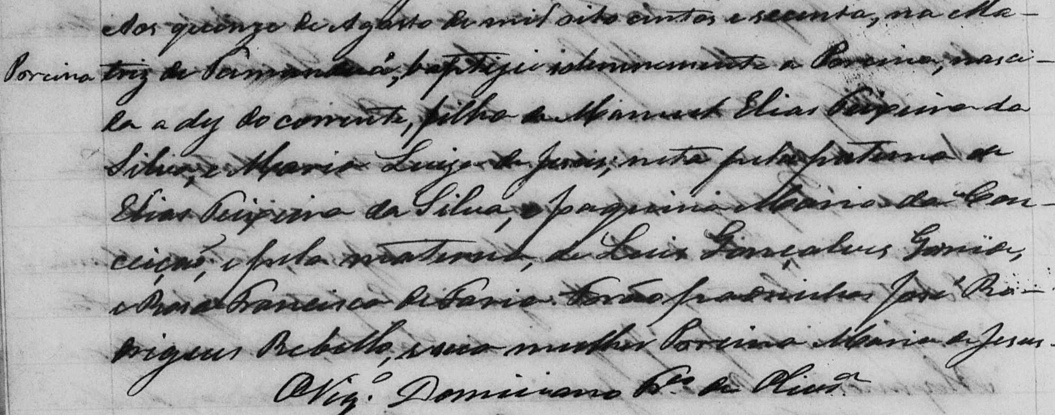 Aos quinze de Agosto de mil oito centos e secenta, na Ma-
Porcina triz de Tamanduá, baptizei solemnemente a Porcina, nasci-
da a dez do corrente, filha de Manuel Elias Teixeira da
Silva, e Maria Luiza de Jesus, neta pela paterna de
Elias Teixeira da Silva, e Joaquina Maria da Con-
ceição, e pela materna, de Luis Gonçalves
e Rosa Francisca de Faria. Forão padrinhos José Ro-
drigues Rebello, e sua mulher Porcina Maria de Jesus.
O Vigº. Domiciano Frª de Olivª